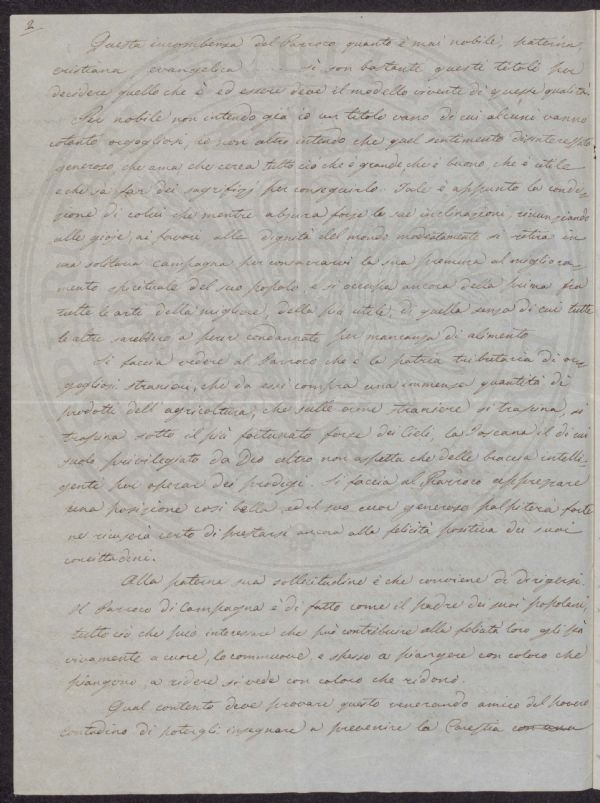 2
Questa incombenza del Parroco quanto è mai nobile, paterna,
cristiana evangelica ..... si son bastanti questi titoli per
decidere quello che è ed essere deve il modello vivente di queste qualità.
Per nobile non intendo già io un titolo vano di cui alcuni vanno
cotanto orgogliosi, io non altro intendo che quel sentimento disinteressato
generoso, che ama che cerca tutto ciò che è grande, che è buono che è utile
e che sa far dei sagrifizj per conseguirlo. Tale è appunto la condi-
zione di colui che mentre abjura forse le sue inclinazioni, rinunziando
alle gioje, ai favori alle dignità del mondo modestamente si ritira in
una solitaria campagna per consacrarvi la sua premura al migliora-
mento spirituale del suo popolo, e si occupa ancora della prima fra
tutte le arti della migliore, della più utile, di quella senza di cui tutte
le altre sarebbero a perir condannate per mancanza di alimento
Si faccia vedere al Parroco che è la patria tributaria di or-
gogliosi stranieri, che da essi compra una immensa quantità di
prodotti dell'agricoltura, che sulle orme straniere si trascina, si
trascina sotto il più fortunato forse dei Cieli, la Toscana il di cui
suolo privilegiato da Dio altro non aspetta che delle braccia intelli-
gente per operar dei prodigi. Si faccia al Parroco apprezzare
una posizione così bella ed il suo cuor generoso palpiterà forte
ne ricuserà certo di prestarsi ancora alla felicità positiva dei suoi
concittadini.
Alla paterna sua sollecitudine è che conviene di dirigersi.
Il Parroco di Campagna è di fatto come il padre dei suoi popolani,
tutto ciò che puco interessare che può contribuire alla felicità loro gli sta
vivamente a cuore, lo commuove, e spesso a piangere con coloro che
piangono, a ridere si vede con coloro che ridono.
Qual contento deve provare questo venerando amico del povero
contadino di potergli insegnare a prevenire la Carestia con una